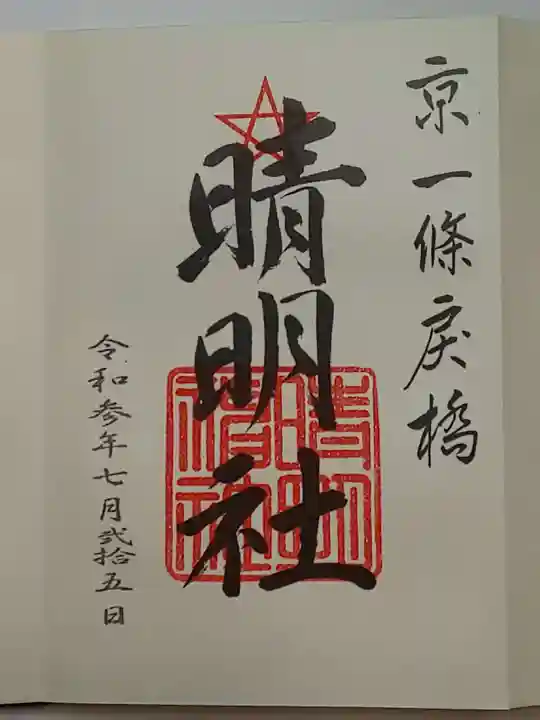 京一條戻橋
晴明社
晴明
神社
令和参年七月弐拾五日